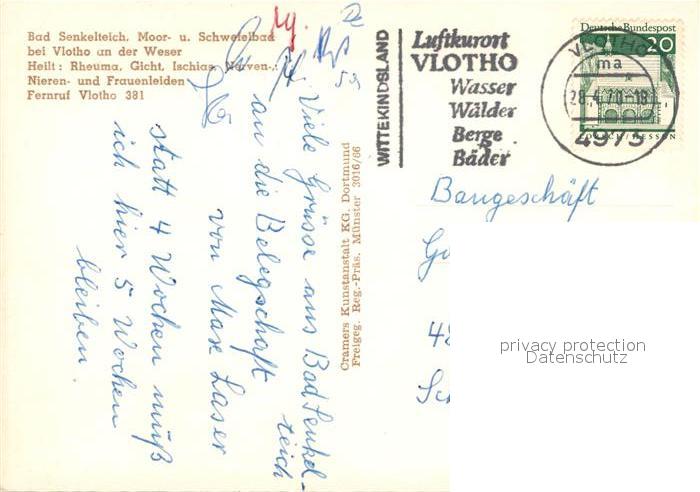 Bad Senkelteich, Moor- u. Schwefelbad
bei Vlotho an der Weser
Heilt: Rheuma, Gicht, Ischias, Nerven-,
Nieren- und Frauenleiden
Fernruf Vlotho 381
Viele Grüsse aus Bad Senkel-
teich
an die Belegschaft
von Max Laser
statt 4 Wochen muß
ich hier 5 Wochen
bleiben.
Cramers Kunstanstalt KG. Dortmund
Freigeg. Reg.-Präs. Münster 3016/66
WITTEKINDSLAND
Luftkurort
VLOTHO
Wasser
Wälder
Berge
Bäder
Deutsche Bundespost
20
LORSCH/HESSEN
VLOTHO
ma
28.4.70-18
4973
Baugeschäft
48
privacy protection
Datenschutz